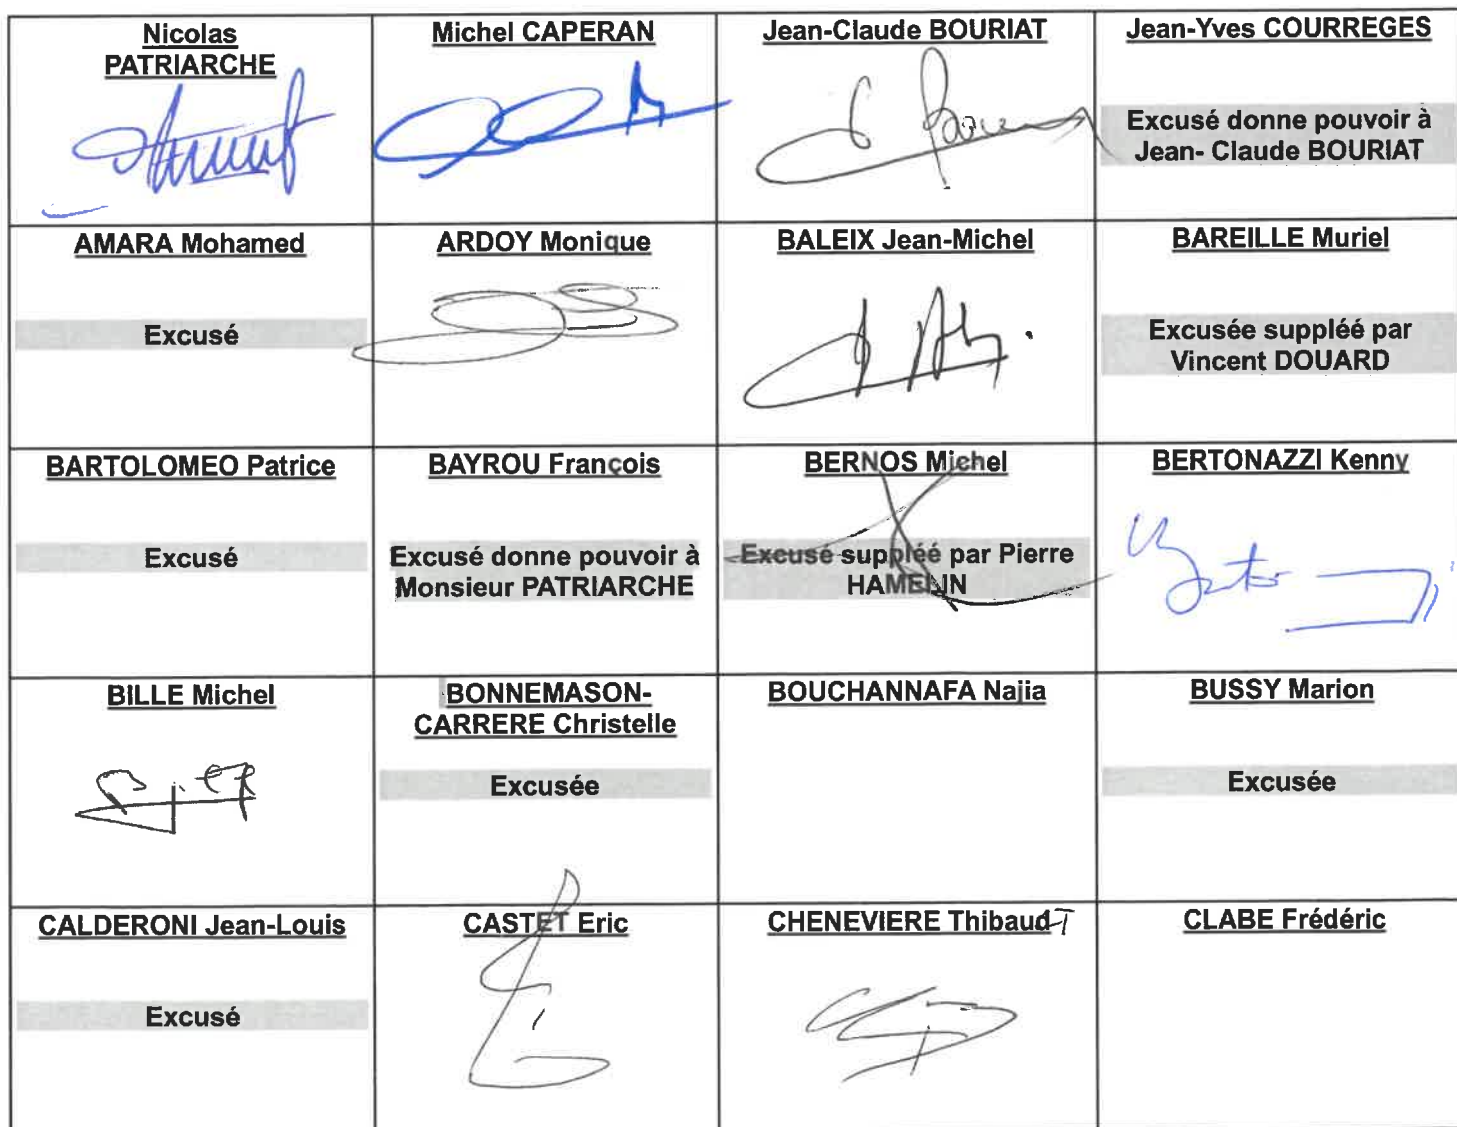 Nicolas
PATRIARCHE
Michel CAPERAN
Jean-Claude BOURIAT
Jean-Yves COURREGES
Excusé donne pouvoir à
Jean- Claude BOURIAT
AMARA Mohamed
Excusé
ARDOY Monique
BALEIX Jean-Michel
BAREILLE Muriel
Excusée suppléé par
Vincent DOUARD
BARTOLOMEO Patrice
Excusé
BAYROU François
Excusé donne pouvoir à
Monsieur PATRIARCHE
BERNOS Michel
Excusé suppléé par Pierre
HAMELIN
BERTONAZZI Kenny
BILLE Michel
BONNEMASON-
CARRERE Christelle
Excusée
BOUCHANNAFA Najia
BUSSY Marion
Excusée
CALDERONI Jean-Louis
Excusé
CASTET Eric
CHENEVIERE Thibaud T
CLABE Frédéric